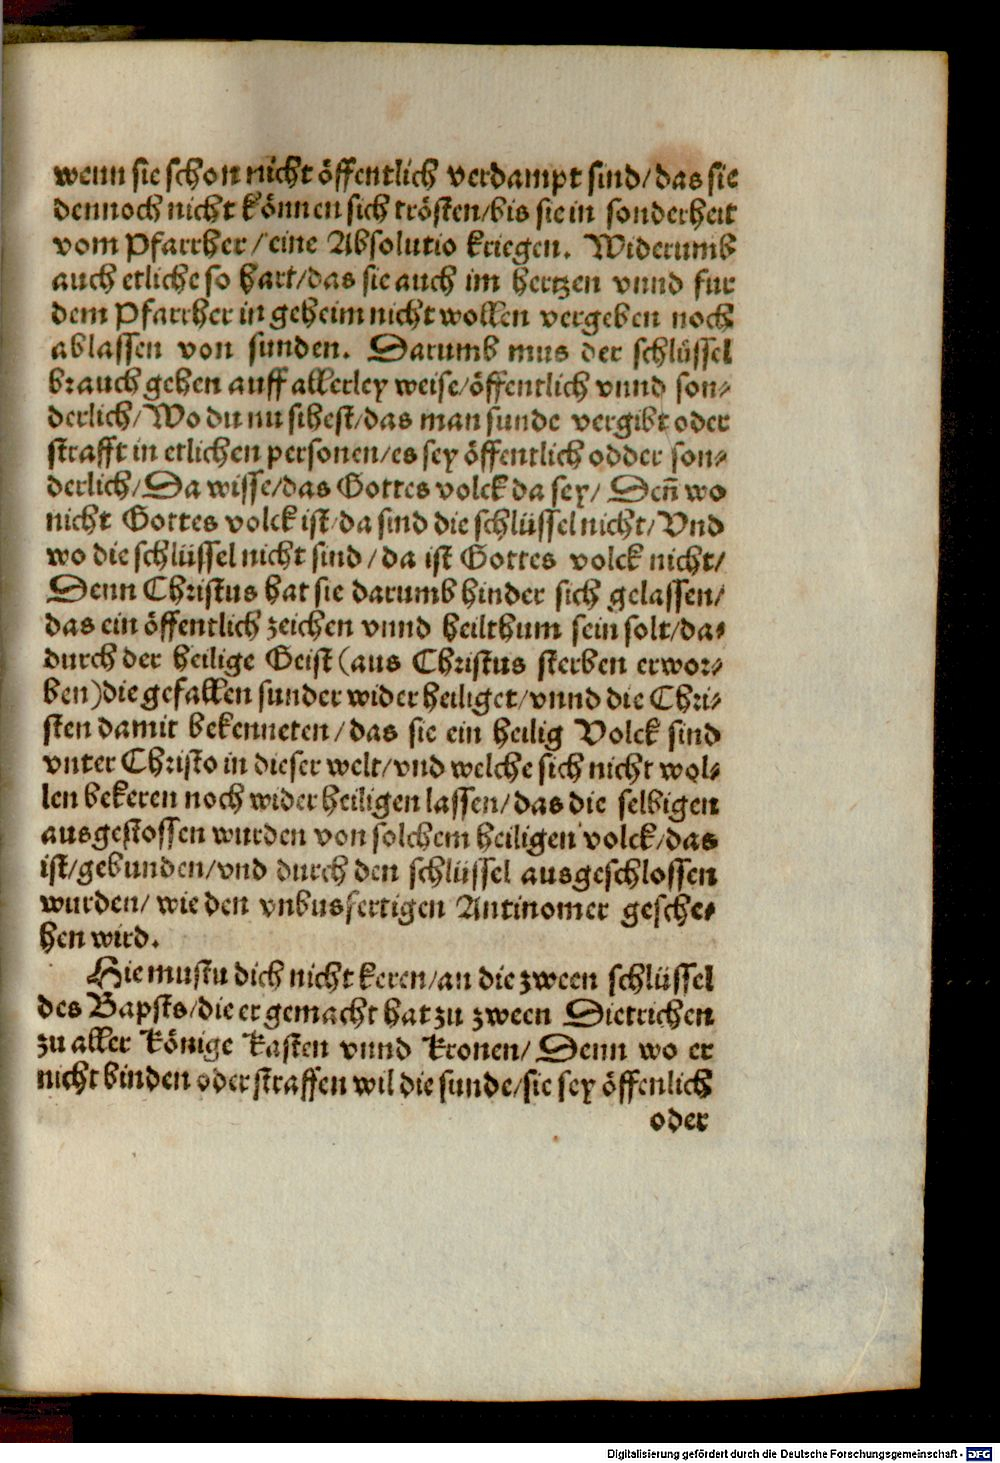 wenn sie schon nicht öffentlich verdampt sind/das sie
dennoch nicht können sich trösten/bis sie in sonderheit
vom Pfarrher/eine Absolutio kriegen. Widerumb
auch etliche so hart/das sie auch im hertzen vnnd fur
dem Pfarrher in geheim nicht wollen vergeben noch
ablassen von sunden. Darumb mus der schlüssel
brauch gehen auff allerley weise/öffentlich vnnd son-
derlich/Wo du nu sihest/das man sunde vergibt oder
strafft in etlichen personen/es sey öffentlich odder son-
derlich/Da wisse/das Gottes volck da sey/ Deñ wo
nicht Gottes volck ist/da sind die schlüssel nicht/Vnd
wo die schlüssel nicht sind/da ist Gottes volck nicht/
Denn Christus hat sie darumb hinder sich gelassen/
das ein öffentlich zeichen vnnd heilthum sein solt/da-
durch der heilige Geist (aus Christus sterben erwor-
ben) die gefallen sunder wider heiliget/vnnd die Chri-
sten damit bekenneten/das sie ein heilig Volck sind
vnter Christo in dieser welt/vnd welche sich nicht wol-
len bekeren noch wider heiligen lassen/das die selbigen
ausgestossen wurden von solchem heiligen volck/das
ist/gebunden/vnd durch den schlüssel ausgeschlossen
wurden/ wie den vnbusfertigen Antinomer gesche-
hen wird.
Hie mustu dich nicht keren/an die zween schlüssel
des Bapsts/die er gemacht hat zu zween Dietrichen
zu aller Könige Kasten vnnd Kronen/ Denn wo er
nicht binden oder straffen wil die sunde/sie sey öffenlich
oder
Digitalisierung gefördert durch die Deutsche Forschungsgemeinschaft - DFG